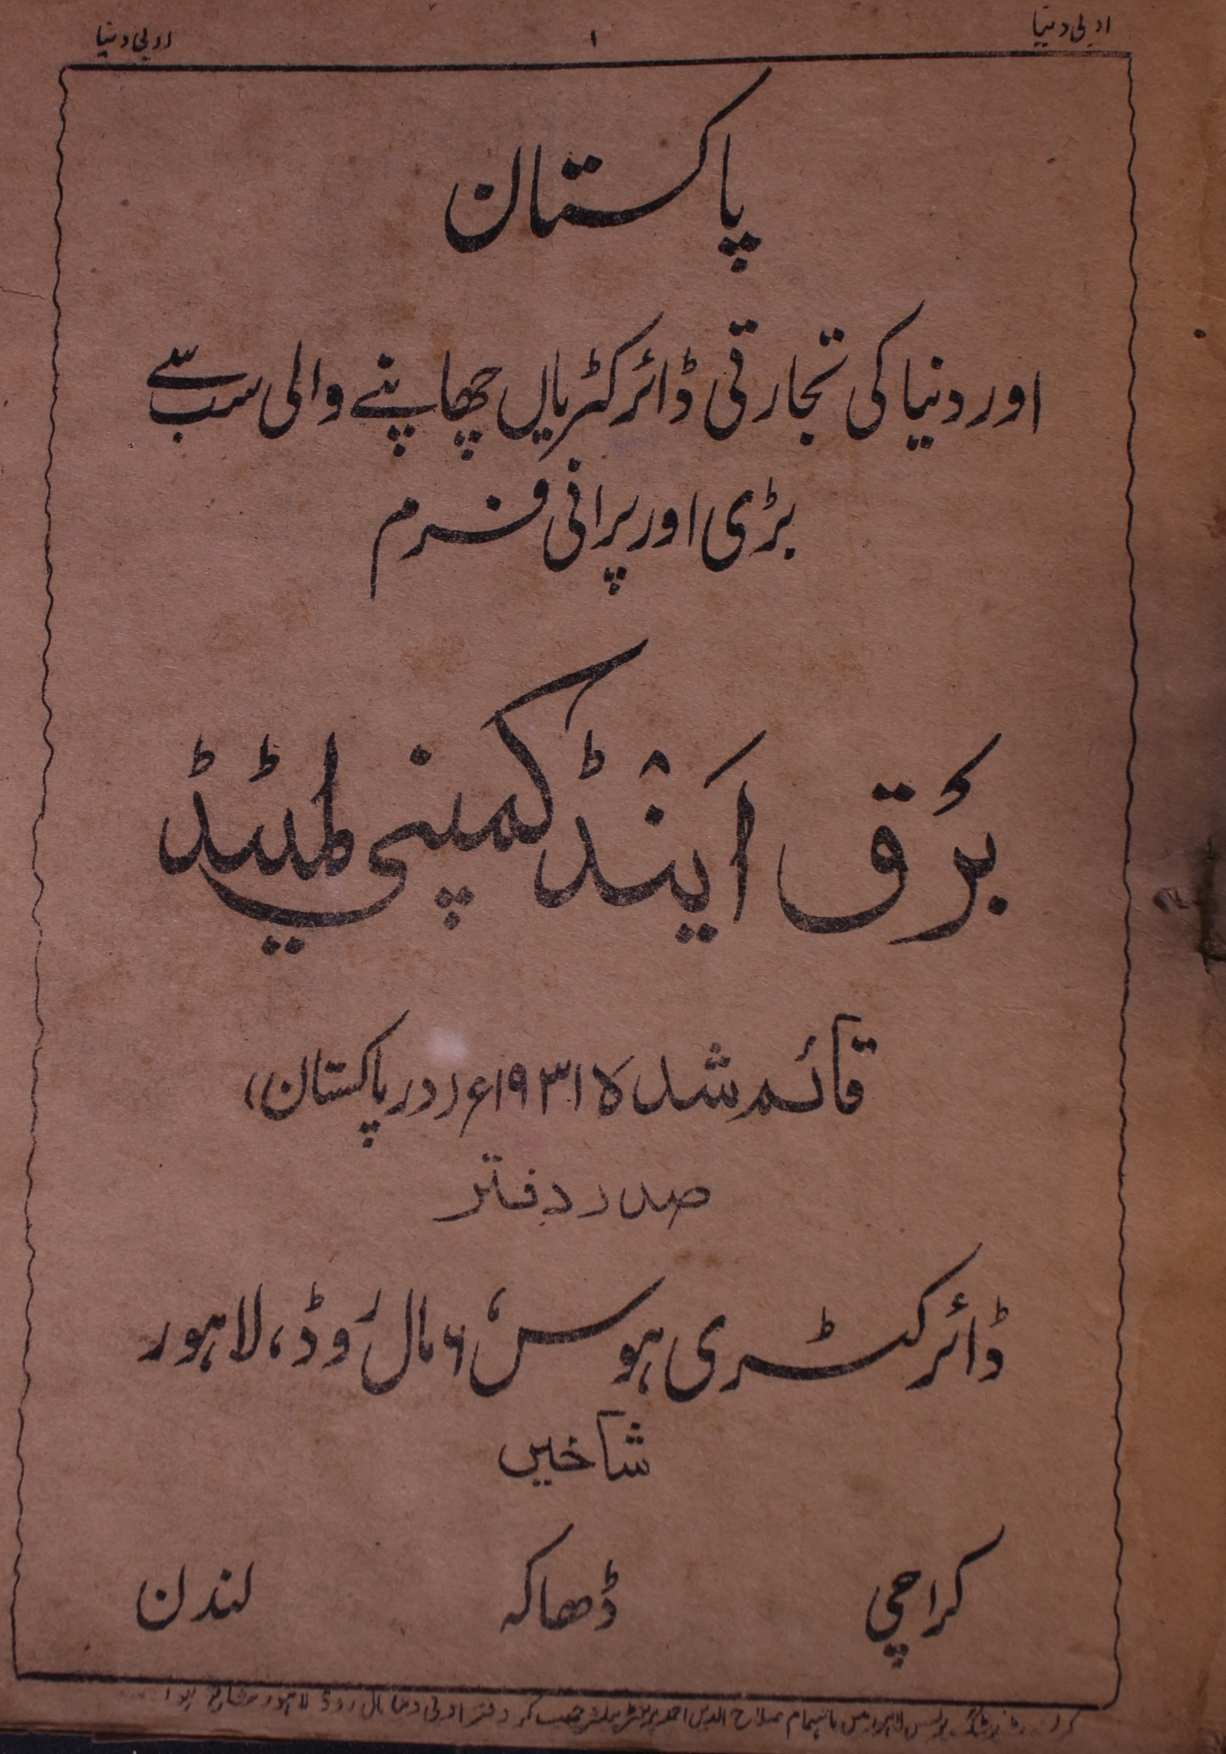 ادبی دنیا ۱ ادبی دنیا
پاکستان
اور دنیا کی تجارتی ڈائرکٹریاں چھاپنے والی سب سے
بڑی اور پرانی فرم
برق اینڈ کمپنی لمیٹیڈ
قائم شدہ ۱۹۳۱ء (در پاکستان)
صدر دفتر
ڈائرکٹری ہوس، ۶ مال روڈ، لاہور
شاخیں
کراچی ڈھاکہ لندن
پریس لاہور میں باہتمام صلاح الدین احمد پرنٹر پبلشر چھپ کر دفتر ادبی دنیا مال روڈ لاہور سے شائع ہوا